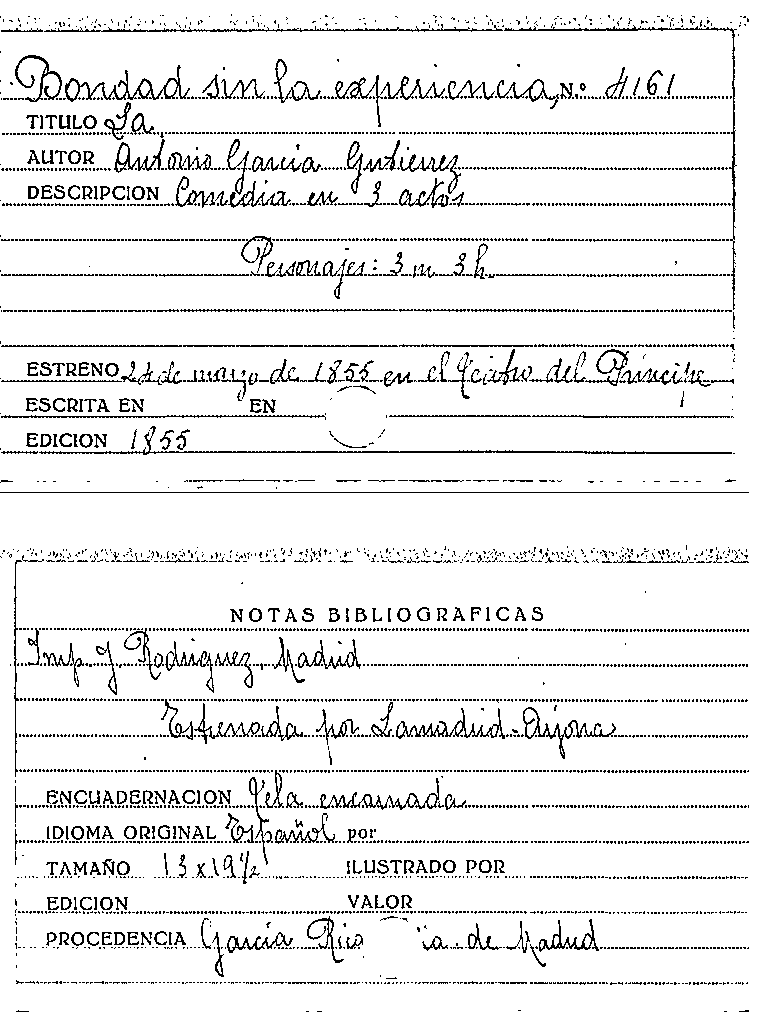 Bondad sin la experiencia, N.º 4161
TITULO La.
AUTOR Antonio García Gutierrez
DESCRIPCION Comedia en 3 actos
Personajes: 3 m 3 h.
ESTRENO 24 de marzo de 1855 en el Teatro del Príncipe
ESCRITA EN EN
EDICION 1855
NOTAS BIBLIOGRAFICAS
Imp. J. Rodriguez, Madrid
Estrenada por Lamadrid-Arjona
ENCUADERNACION Tela encarnada
IDIOMA ORIGINAL Español por
TAMAÑO 13 x 19 1/2 ILUSTRADO POR
EDICION VALOR
PROCEDENCIA García Rico de Madrid